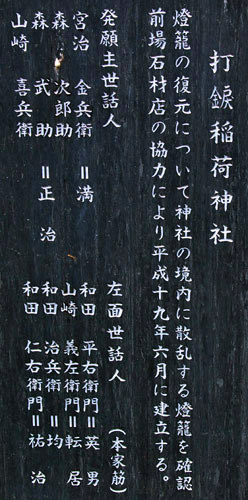 打鋃稲荷神社
燈籠の復元について神社の境内に散乱する燈籠を確認
前場石材店の協力により平成十九年六月に建立する。
発願主世話人
宮治 金兵衛=満
森 次郎助
森 武助=正治
山崎 喜兵衛
左面世話人(本家筋)
和田 平右衛門=英男
山崎 義左衛門=転居
和田 治兵衛=均
和田 仁右衛門=祐治